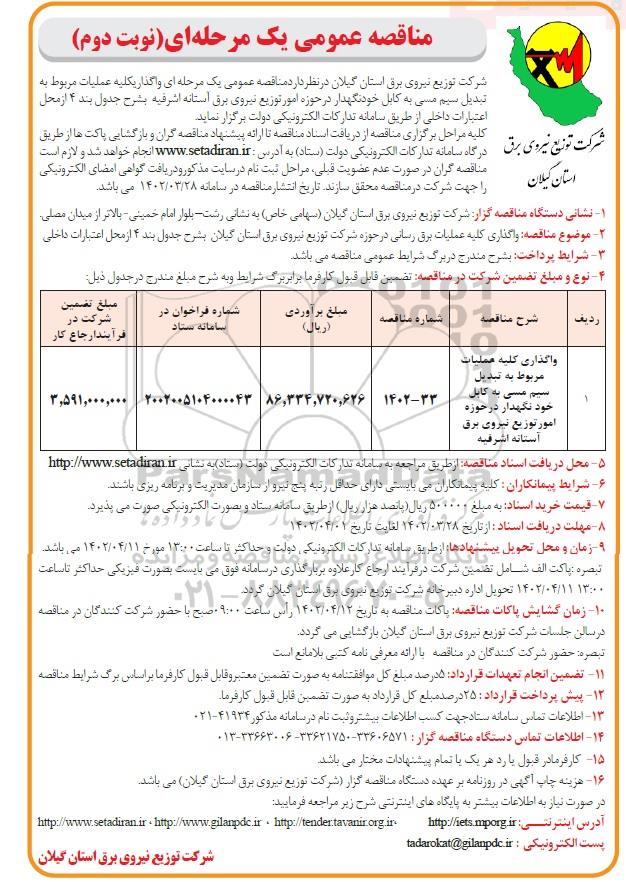 مناقصه عمومی یک مرحله‌ای(نوبت دوم)
شرکت توزیع نیروی برق
استان گیلان
شرکت توزیع نیروی برق استان گیلان درنظردارد مناقصه عمومی یک مرحله ای واگذاری کلیه عملیات مربوط به
تبدیل سیم مسی به کابل خودنگهدار درحوزه امورتوزیع نیروی برق آستانه اشرفیه بشرح جدول بند ۴ ازمحل
اعتبارات داخلی از طریق سامانه تدارکات الکترونیکی دولت برگزار نماید.
کلیه مراحل برگزاری مناقصه از دریافت اسناد مناقصه تا ارائه پیشنهاد مناقصه گران و بازگشایی پاکت ها از طریق
درگاه سامانه تدارکات الکترونیکی دولت (ستاد) به آدرس : www.setadiran.ir انجام خواهد شد و لازم است
مناقصه گران در صورت عدم عضویت قبلی، مراحل ثبت نام درسایت مذکورودریافت گواهی امضای الکترونیکی
را جهت شرکت درمناقصه محقق سازند. تاریخ انتشارمناقصه در سامانه ۱۴۰۲/۰۳/۲۸ می باشد.
۱- نشانی دستگاه مناقصه گزار: شرکت توزیع نیروی برق استان گیلان (سهامی خاص) به نشانی رشت–بلوار امام خمینی-بالاتر از میدان مصلی.
۲- موضوع مناقصه: واگذاری کلیه عملیات برق رسانی درحوزه شرکت توزیع نیروی برق استان گیلان بشرح جدول بند ۴ ازمحل اعتبارات داخلی
۳ - شرایط پرداخت: بشرح مندرج دربرگ شرایط عمومی مناقصه می باشد.
۴- نوع و مبلغ تضمین شرکت در مناقصه: تضمین قابل قبول کارفرما برابربرگ شرایط وبه شرح مبلغ مندرج درجدول ذیل:
ردیف شرح مناقصه شماره مناقصه مبلغ برآوردی (ریال) شماره فراخوان در سامانه ستاد مبلغ تضمین شرکت در فرآیندارجاع کار
۱ واگذاری کلیه عملیات مربوط به تبدیل سیم مسی به کابل خود نگهدار درحوزه امورتوزیع نیروی برق آستانه اشرفیه ۱۴۰۲-۳۳ ۸۶,۳۳۴,۷۲۰,۶۲۶ ۲۰۰۲۰۰۵۱۰۴۰۰۰۰۴۳ ۳,۵۹۱,۰۰۰,۰۰۰
۵ - محل دریافت اسناد مناقصه: ازطریق مراجعه به سامانه تدارکات الکترونیکی دولت (ستاد)به نشانی http://www.setadiran.ir
۶- شرایط پیمانکاران : کلیه پیمانکاران می بایستی دارای حداقل رتبه پنج نیرو از سازمان مدیریت و برنامه ریزی باشند.
۷-قیمت خرید اسناد: به مبلغ ۵۰۰۰۰۰ ریال(پانصد هزار ریال) ازطریق سامانه ستاد و بصورت الکترونیکی صورت می پذیرد.
۸-مهلت دریافت اسناد : ازتاریخ ۱۴۰۲/۰۳/۲۸ لغایت تاریخ ۱۴۰۲/۰۴/۰۱
۹-زمان و محل تحویل پیشنهادها: ازطریق سامانه تدارکات الکترونیکی دولت و حداکثر تا ساعت۱۳:۰۰ مورخ ۱۴۰۲/۰۴/۱۱ می باشد.
تبصره :پاکت الف شامل تضمین شرکت درفرآیند ارجاع کارعلاوه بربارگذاری درسامانه فوق می بایست بصورت فیزیکی حداکثر تاساعت
۱۳:۰۰ ۱۴۰۲/۰۴/۱۱ تحویل اداره دبیرخانه شرکت توزیع نیروی برق استان گیلان گردد.
۱۰- زمان گشایش پاکات مناقصه: پاکات مناقصه به تاریخ ۱۴۰۲/۰۴/۱۲ رأس ساعت ۰۹:۰۰ صبح با حضور شرکت کنندگان در مناقصه
درسالن جلسات شرکت توزیع نیروی برق استان گیلان بازگشایی می گردد.
تبصره: حضور شرکت کنندگان در مناقصه با ارائه معرفی نامه کتبی بلامانع است
۱۱- تضمین انجام تعهدات قرارداد: ۵درصد مبلغ کل موافقتنامه به صورت تضمین معتبروقابل قبول کارفرما براساس برگ شرایط مناقصه
۱۲- پیش پرداخت قرارداد : ۲۵درصدمبلغ کل قرارداد به صورت تضمین قابل قبول کارفرما.
۱۳- اطلاعات تماس سامانه ستادجهت کسب اطلاعات بیشتروثبت نام درسامانه مذکور۴۱۹۳۴-۰۲۱
۱۴- اطلاعات تماس دستگاه مناقصه گزار : ۳۳۶۰۶۵۷۱-۳۳۶۲۱۷۵۰- ۳۳۶۶۳۰۰۶-۰۱۳
۱۵- کارفرمادر قبول یا رد هر یک یا تمام پیشنهادات مختار می باشد.
۱۶- هزینه چاپ آگهی در روزنامه بر عهده دستگاه مناقصه گزار (شرکت توزیع نیروی برق استان گیلان) می باشد.
در صورت نیاز به اطلاعات بیشتر به پایگاه های اینترنتی شرح زیر مراجعه فرمایید:
آدرس اینترنتی: http://iets.mporg.ir ، http://tender.tavanir.org.ir ، http://www.gilanpdc.ir ، http://www.setadiran.ir
پست الکترونیکی : tadarokat@gilanpdc.ir
شرکت توزیع نیروی برق استان گیلان
ParsNamadData
۰۲۱-۸۸۳۴۹۶۷۰-۵